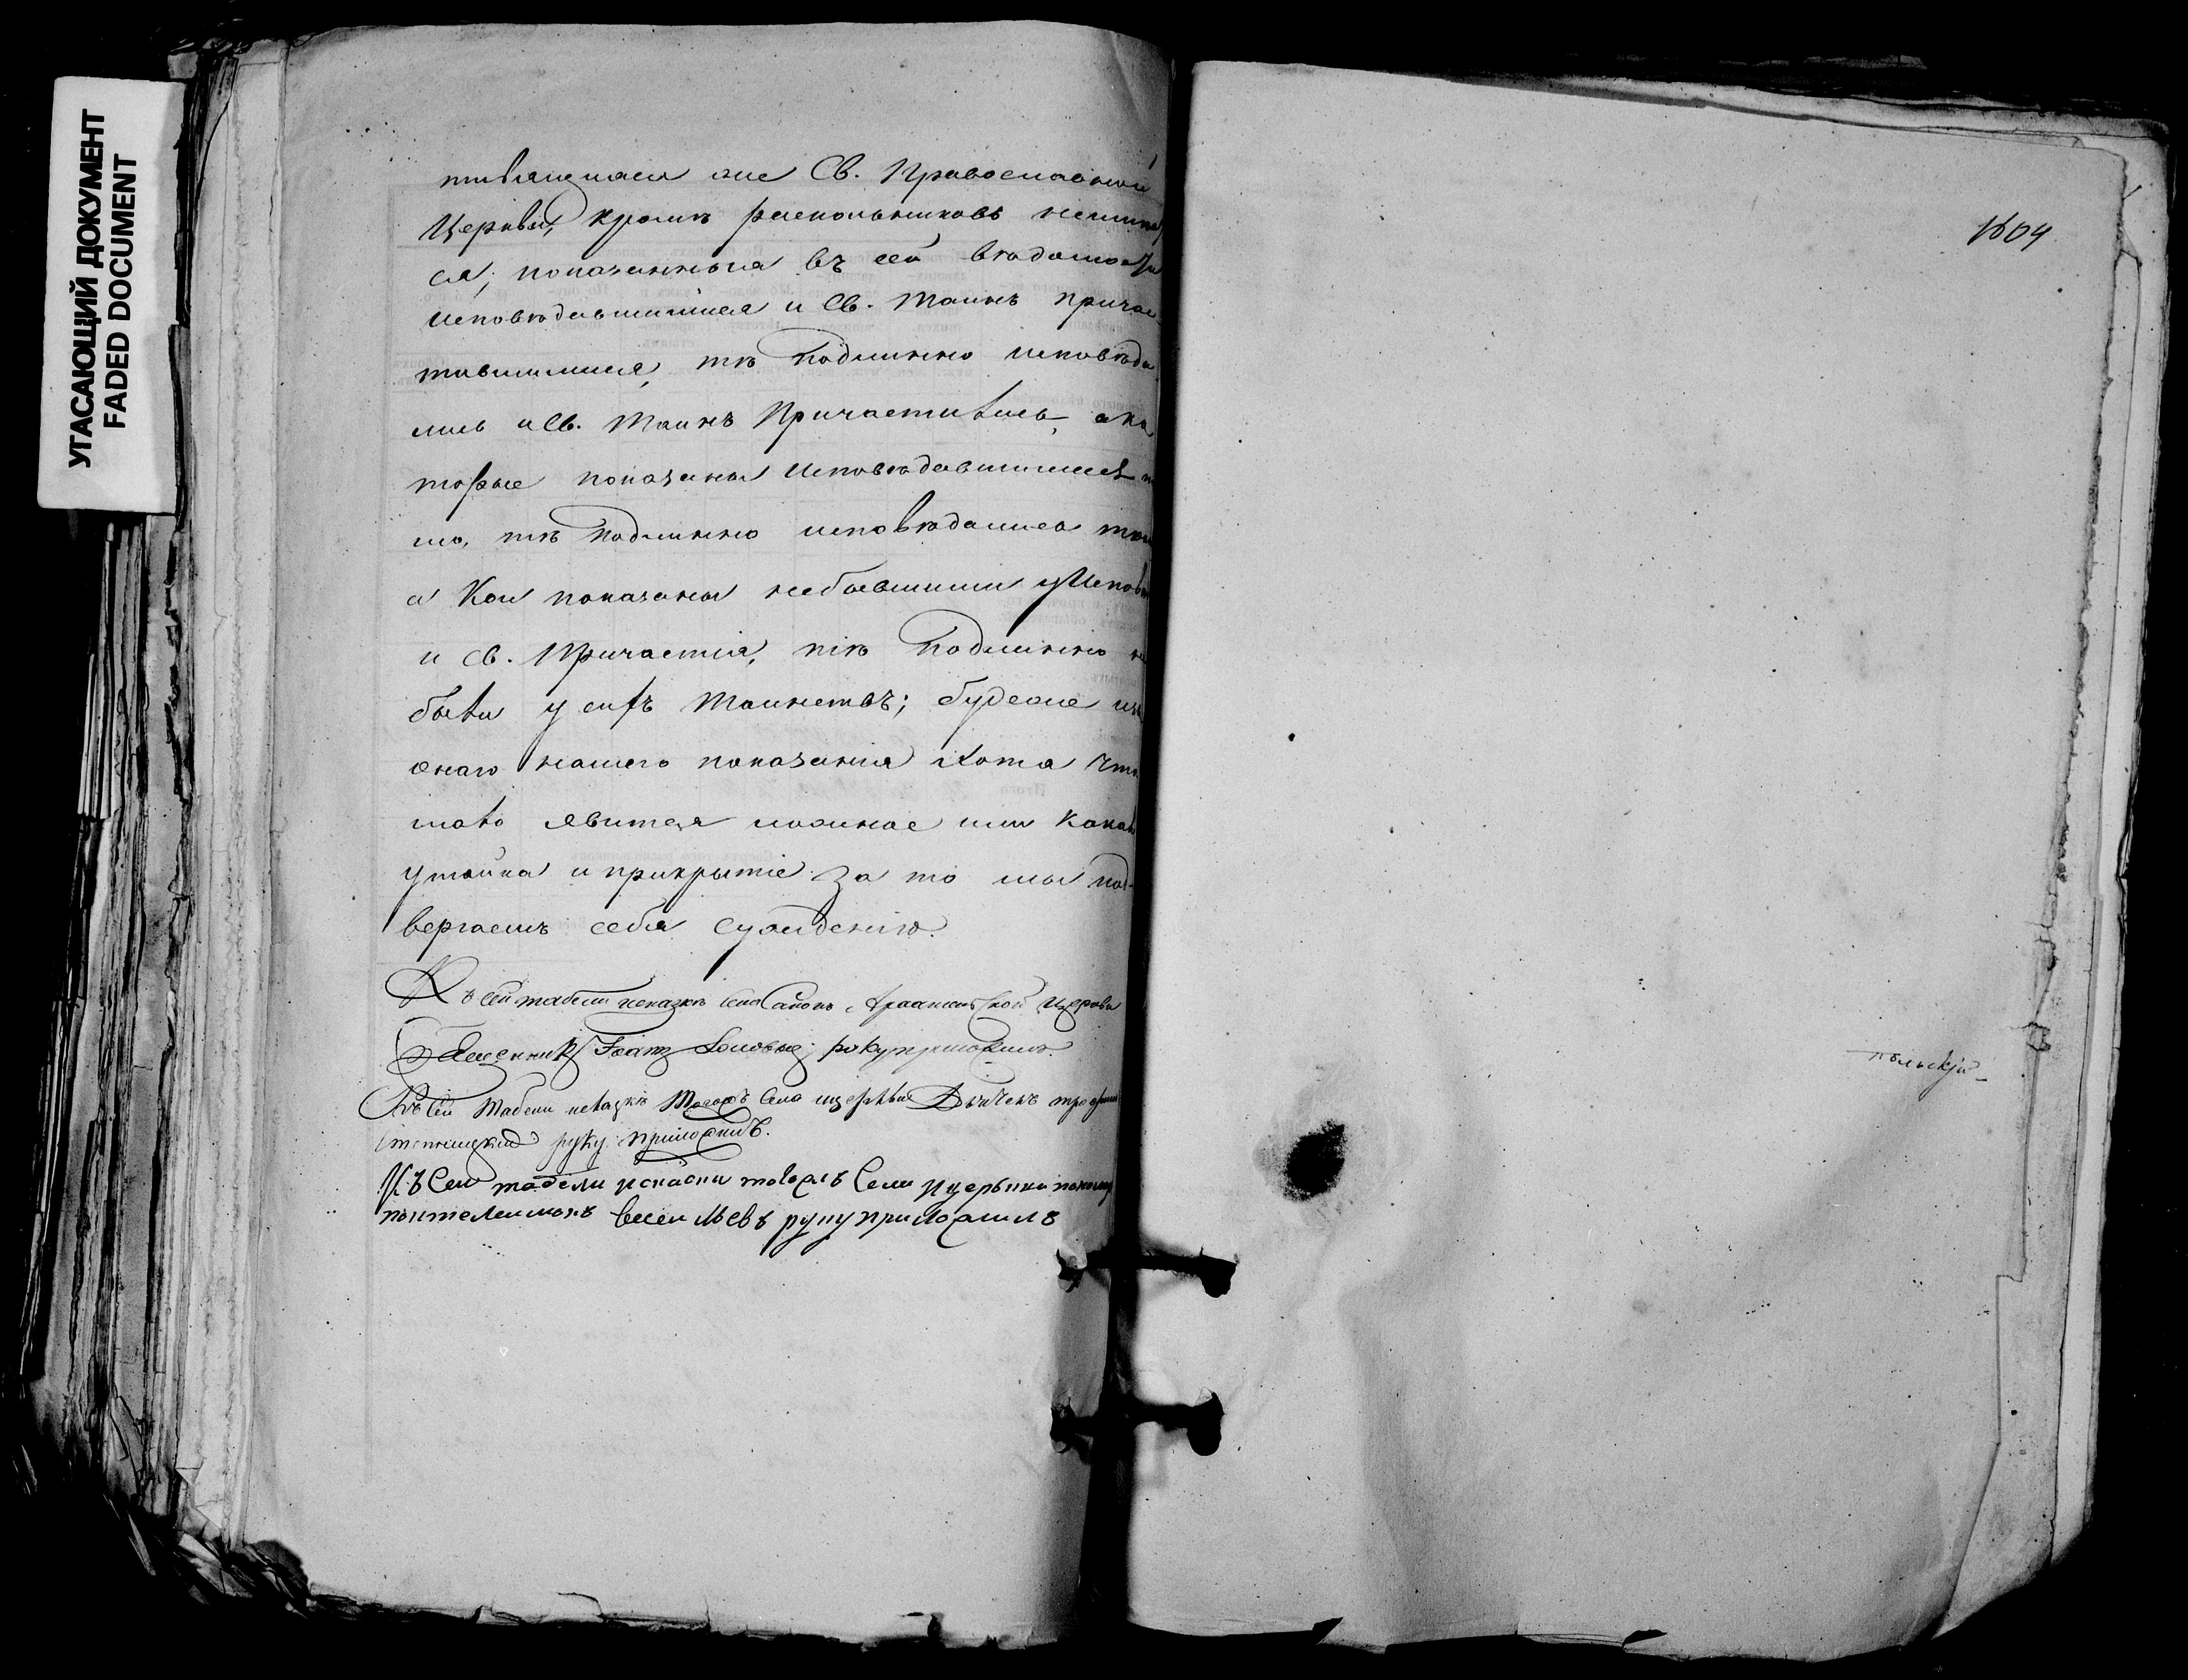 УГАСАЮЩИЙ ДОКУМЕНТ
FADED DOCUMENT
тивляющаяся же Св. Православной
Церкви, кромѣ раскольниковъ неимѣ
ся; показанныя въ сей вѣдомости
исповѣдавшимися и Св. Таинъ причас
тившимися, тѣ подлинно исповѣда
лись и Св. Таинъ Причастились, а ко
торые показаны исповѣдавшимися
мо, тѣ подлинно исповѣдались
а кои показаны небывшими у Испов
и св. Причастія, тѣ подлинно не
были у сихъ таинствъ; будеже изъ
онаго нашего показанія хотя что
мало явится ложное или какая
утайка и прикрытіе за то мы под-
вергаемъ себя сужденію.
Къ сей табели исказкѣ села Церкви
Священникъ Іоаннъ руку приложилъ.
Къ сей табели исказкѣ тогожъ села ицеркви Дьячекъ
руку приложилъ.
Къ сей табели искаски тогожъ села ицеркви
руку приложилъ
1604